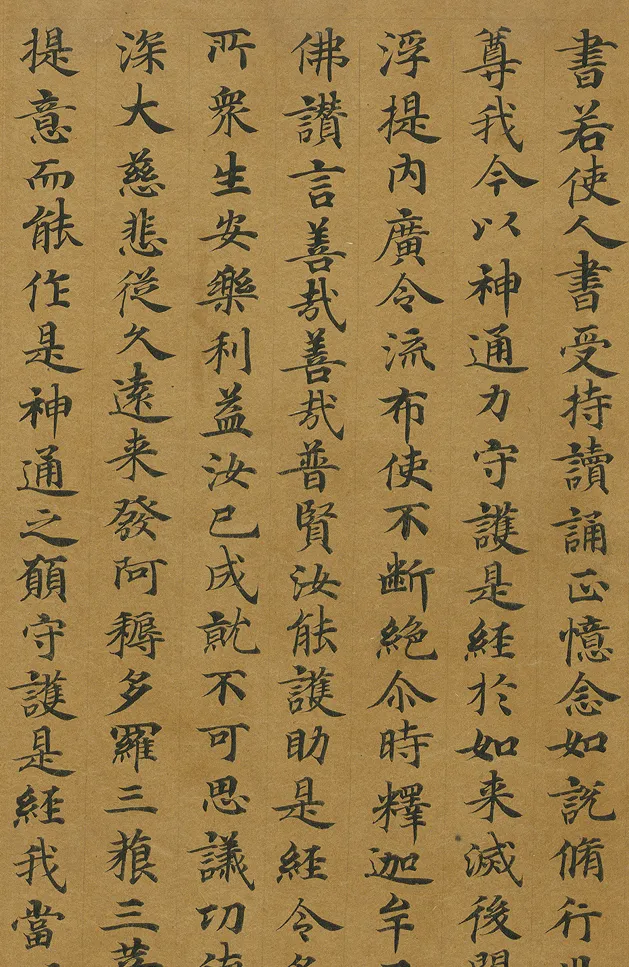 書若使人書受持讀誦正憶念如說脩行世
尊我今以神通力守護是經於如来滅後閻
浮提內廣令流布使不斷絕尒時釋迦牟尼
佛讃言善哉善哉普賢汝能護助是經令多
所衆生安樂利益汝已成就不可思議功德
深大慈悲從久遠来發阿耨多羅三藐三菩
提意而能作是神通之願守護是經我當